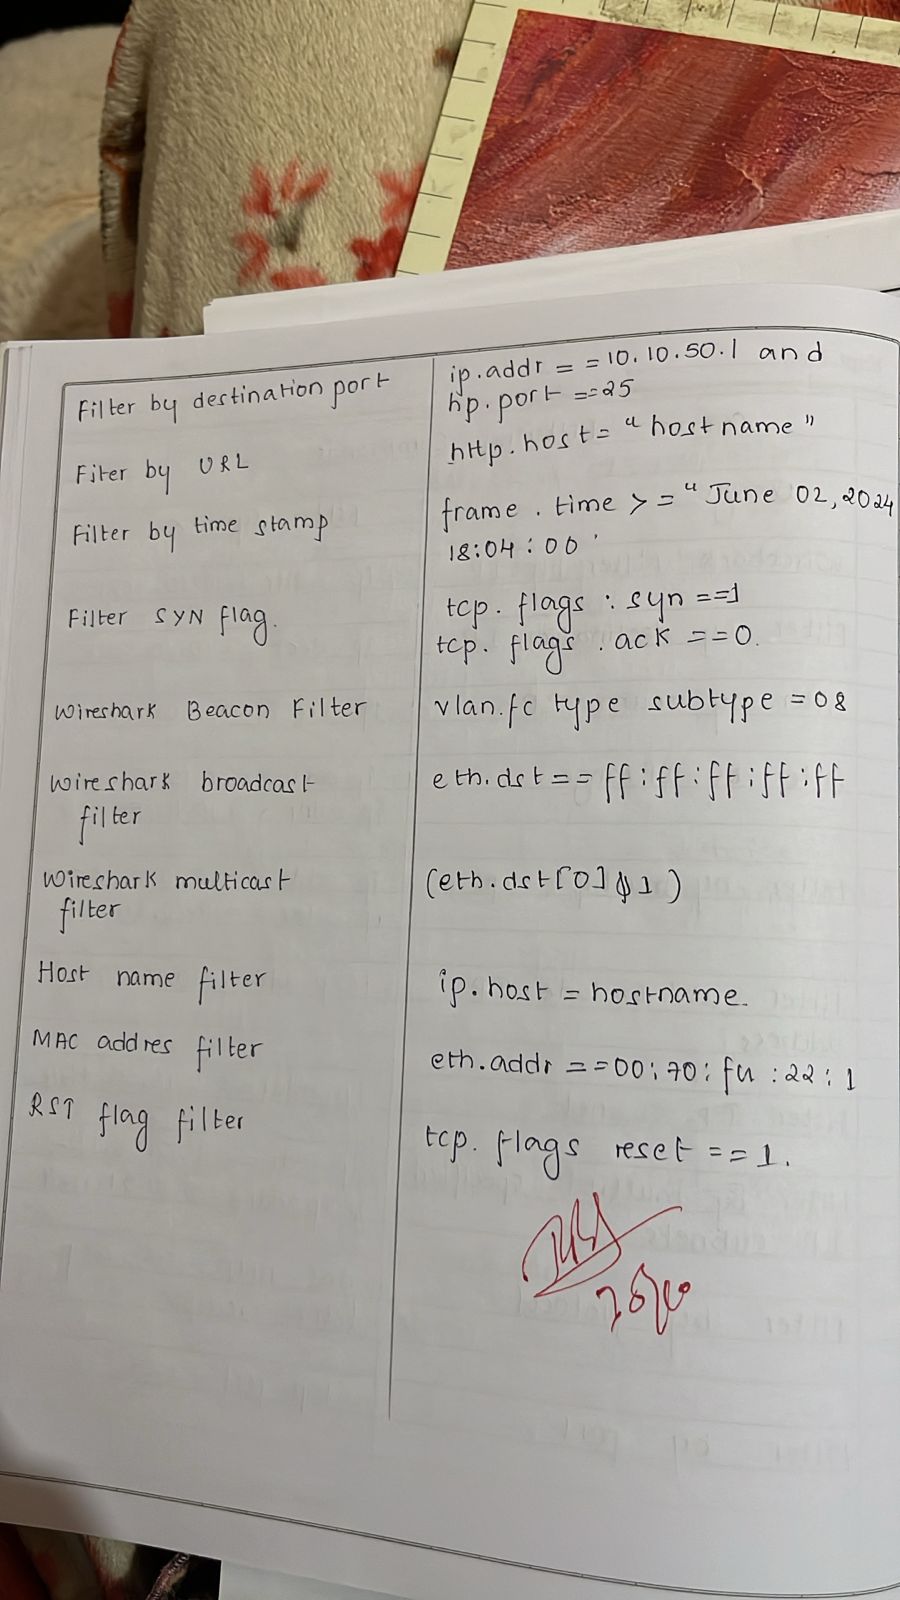 Filter by destination port
ip.addr = = 10.10.50.1 and
hp.port == 25
Fiter by URL
http.host = "hostname"
Filter by time stamp
frame . time > = "June 02, 2024
18:04:00'
Filter SYN flag.
tcp. flags : syn ==1
tcp. flags . ack ==0.
Wireshark Beacon Filter
vlan.fc type subtype = 08
Wireshark broadcast
filter
eth.dst == ff:ff:ff:ff:ff
Wireshark multicast
filter
(eth.dst[0] 1)
Host name filter
ip.host = hostname.
MAC addres filter
eth.addr ==00:70:fu:22:1
RST flag filter
tcp. flags reset ==1.